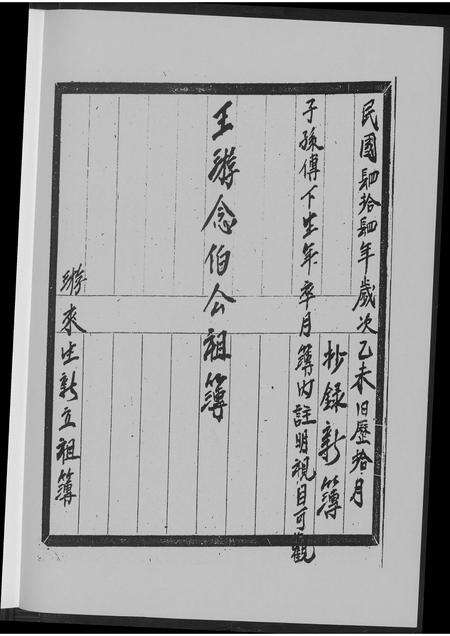 民國肆拾肆年歲次乙未旧歷拾月
抄錄新簿
子孫傳下生年卒月簿内註明視目可觀
王游念伯公祖簿
游來生新立祖簿